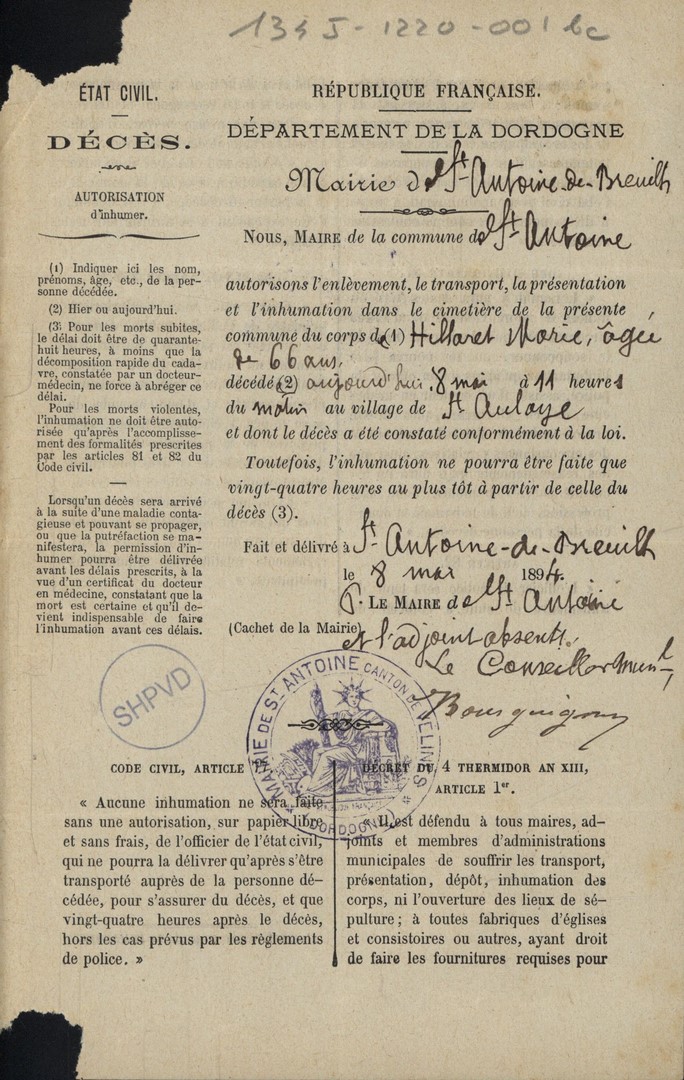 134 J-1220-001 bc
ÉTAT CIVIL.
DÉCÈS.
AUTORISATION
d'inhumer.
(1) Indiquer ici les nom,
prénoms, âge, etc., de la per-
sonne décédée.
(2) Hier ou aujourd'hui.
(3) Pour les morts subites,
le délai doit être de quarante-
huit heures, à moins que la
décomposition rapide du cada-
vre, constatée par un docteur-
médecin, ne force à abréger ce
délai.
Pour les morts violentes,
l'inhumation ne doit être auto-
risée qu'après l'accomplisse-
ment des formalités prescrites
par les articles 81 et 82 du
Code civil.
Lorsqu'un décès sera arrivé
à la suite d'une maladie conta-
gieuse et pouvant se propager,
ou que la putréfaction se ma-
nifestera, la permission d'in-
humer pourra être délivrée
avant les délais prescrits, à la
vue d'un certificat du docteur
en médecine, constatant que la
mort est certaine et qu'il de-
vient indispensable de faire
l'inhumation avant ces délais.
RÉPUBLIQUE FRANÇAISE.
DÉPARTEMENT DE LA DORDOGNE
Mairie de St-Antoine-de-Breuilh
NOUS, MAIRE de la commune de St Antoine
autorisons l'enlèvement, le transport, la présentation
et l'inhumation dans le cimetière de la présente
commune du corps de (1) Hillaret Marie, âgée
de 66 ans.
décédée (2) aujourd'hui 8 mai à 11 heures
du matin au village de St Aulaye
et dont le décès a été constaté conformément à la loi.
Toutefois, l'inhumation ne pourra être faite que
vingt-quatre heures au plus tôt à partir de celle du
décès (3).
Fait et délivré à St-Antoine-de-Breuilh
le 8 mai 1894.
P. LE MAIRE de St Antoine
(Cachet de la Mairie)
et l'adjoint absents.
Le Conseiller Mun-l
Bourguignon
SHPVD
MAIRIE DE ST ANTOINE CANTON DE VÉLINES
DORDOGNE
CODE CIVIL, ARTICLE 77
« Aucune inhumation ne sera faite
sans une autorisation, sur papier libre
et sans frais, de l'officier de l'état civil,
qui ne pourra la délivrer qu'après s'être
transporté auprès de la personne dé-
cédée, pour s'assurer du décès, et que
vingt-quatre heures après le décès,
hors les cas prévus par les règlements
de police. »
DÉCRET DU 4 THERMIDOR AN XIII,
ARTICLE 1er.
« Il est défendu à tous maires, ad-
joints et membres d'administrations
municipales de souffrir les transport,
présentation, dépôt, inhumation des
corps, ni l'ouverture des lieux de sé-
pulture ; à toutes fabriques d'églises
et consistoires ou autres, ayant droit
de faire les fournitures requises pour